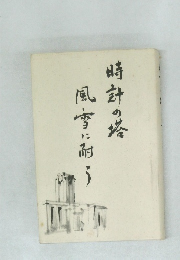 時計の塔
風雪に耐う